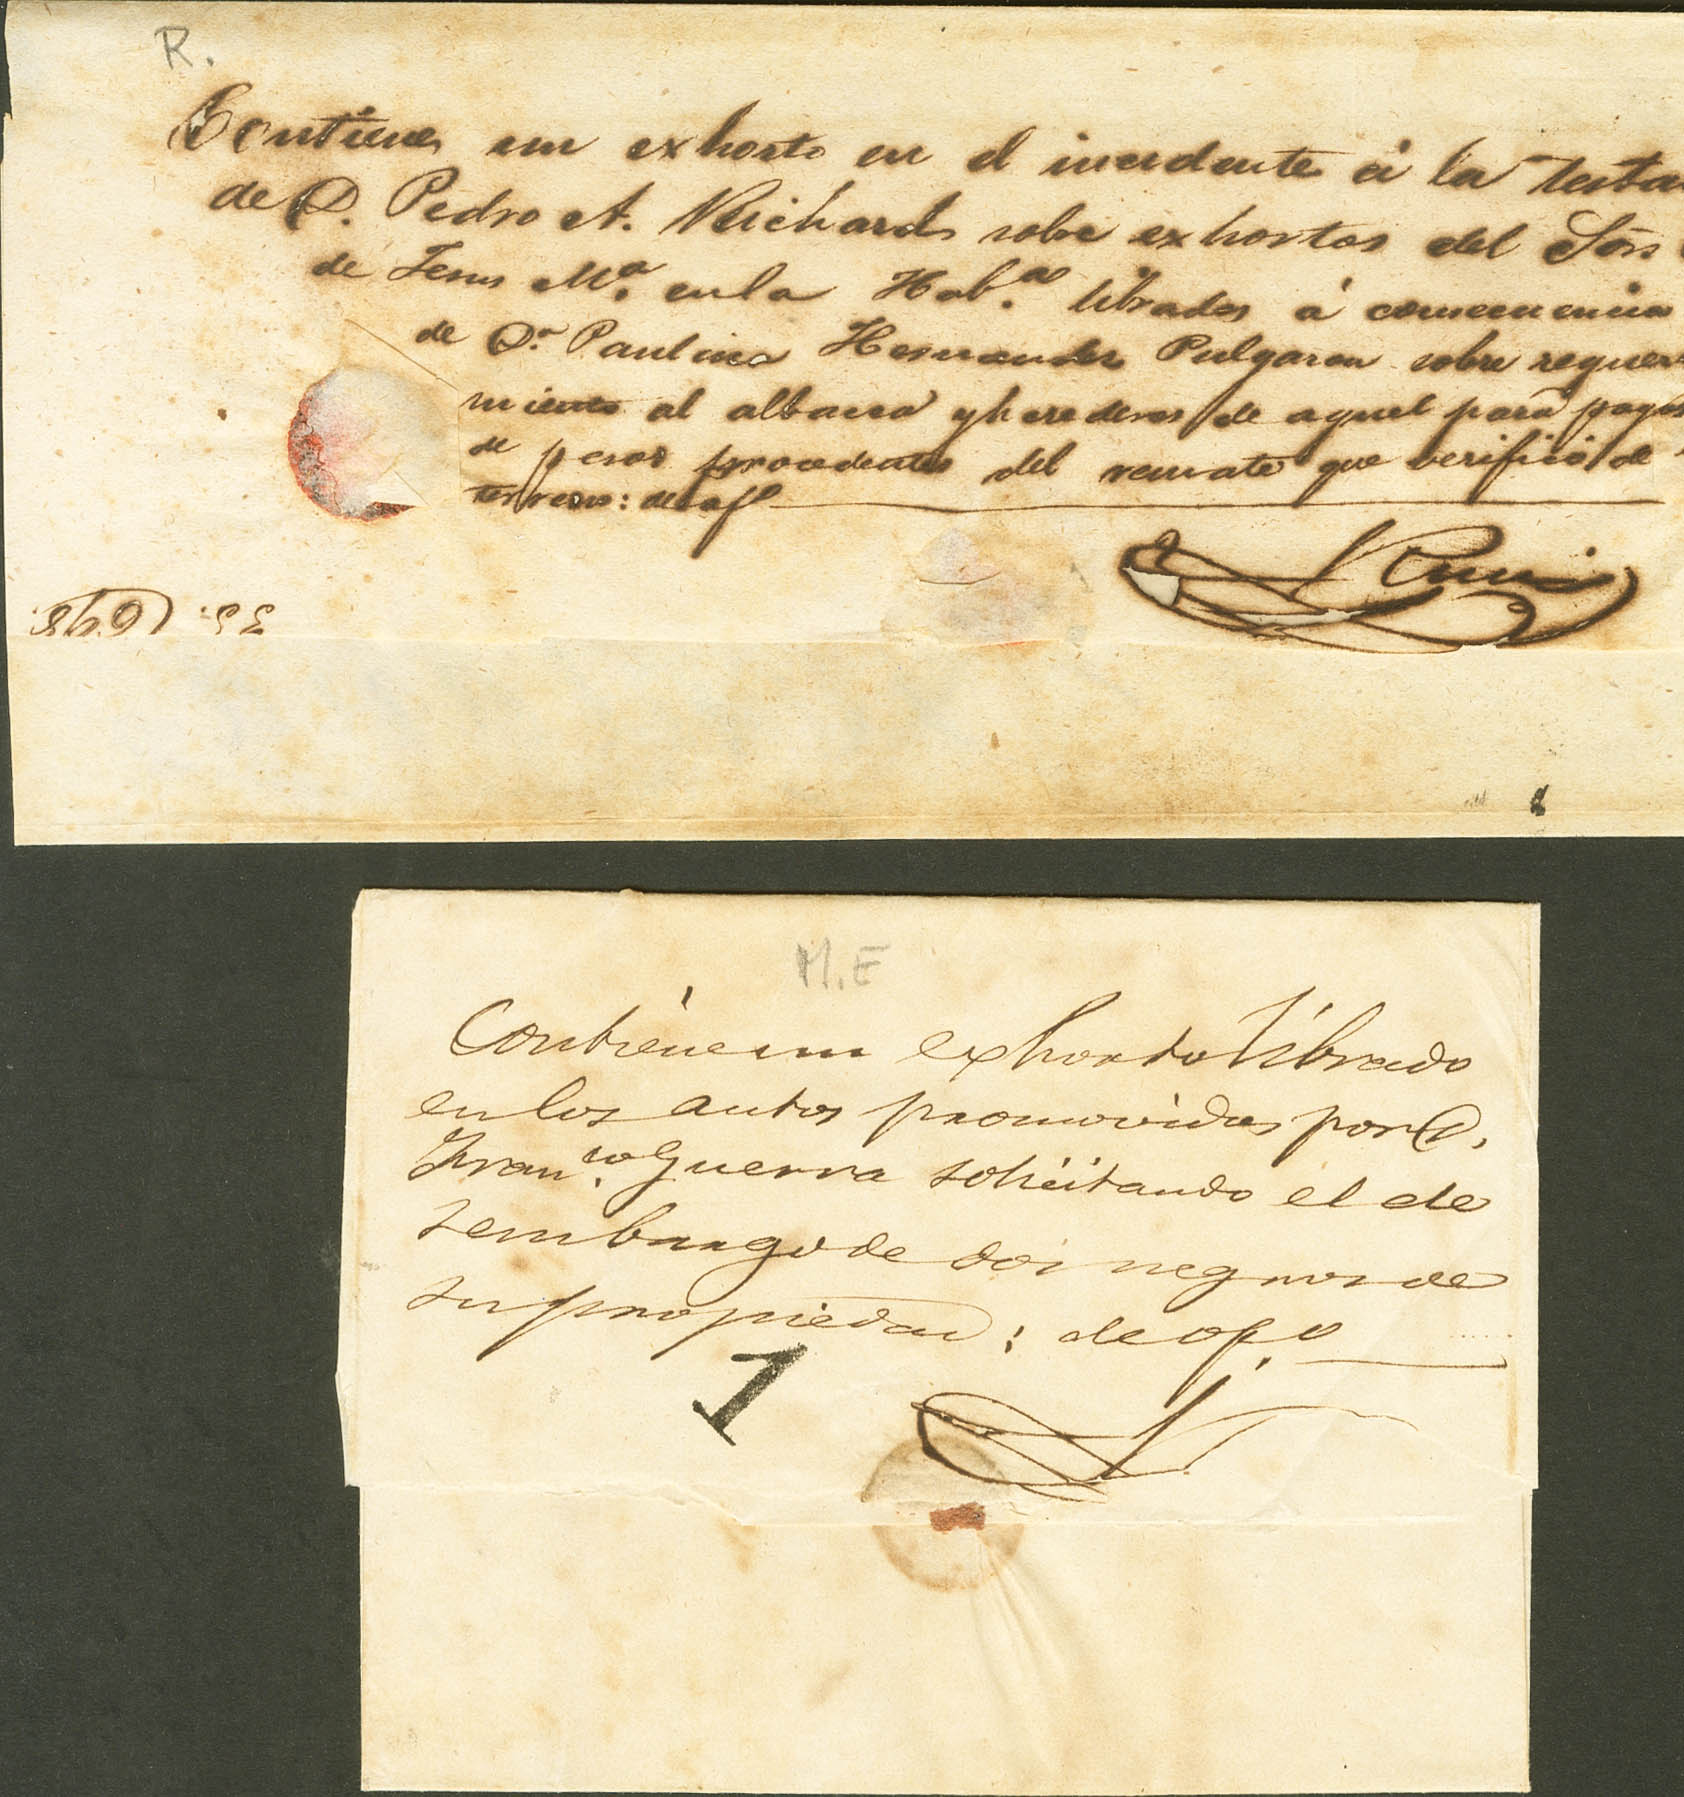 R.
Contiene un exhorto en el incidente á la testa
de D. Pedro A. Richards sobre exhortos del Sor
de Jesus Ma. en la Hab.a librados á consecuencia
de Da. Paulina Hernandez Pulgaron sobre requeri
miento al albacea y herederos de aquel para pago
de pesos procedentes del remate que verificó de
terreno: de of
M.E
Contiene un exhorto librado
en los autos promovidos por D.
Fran.co Guerra solicitando el de
sembargo de dos negros de
su propiedad: de ofo
1